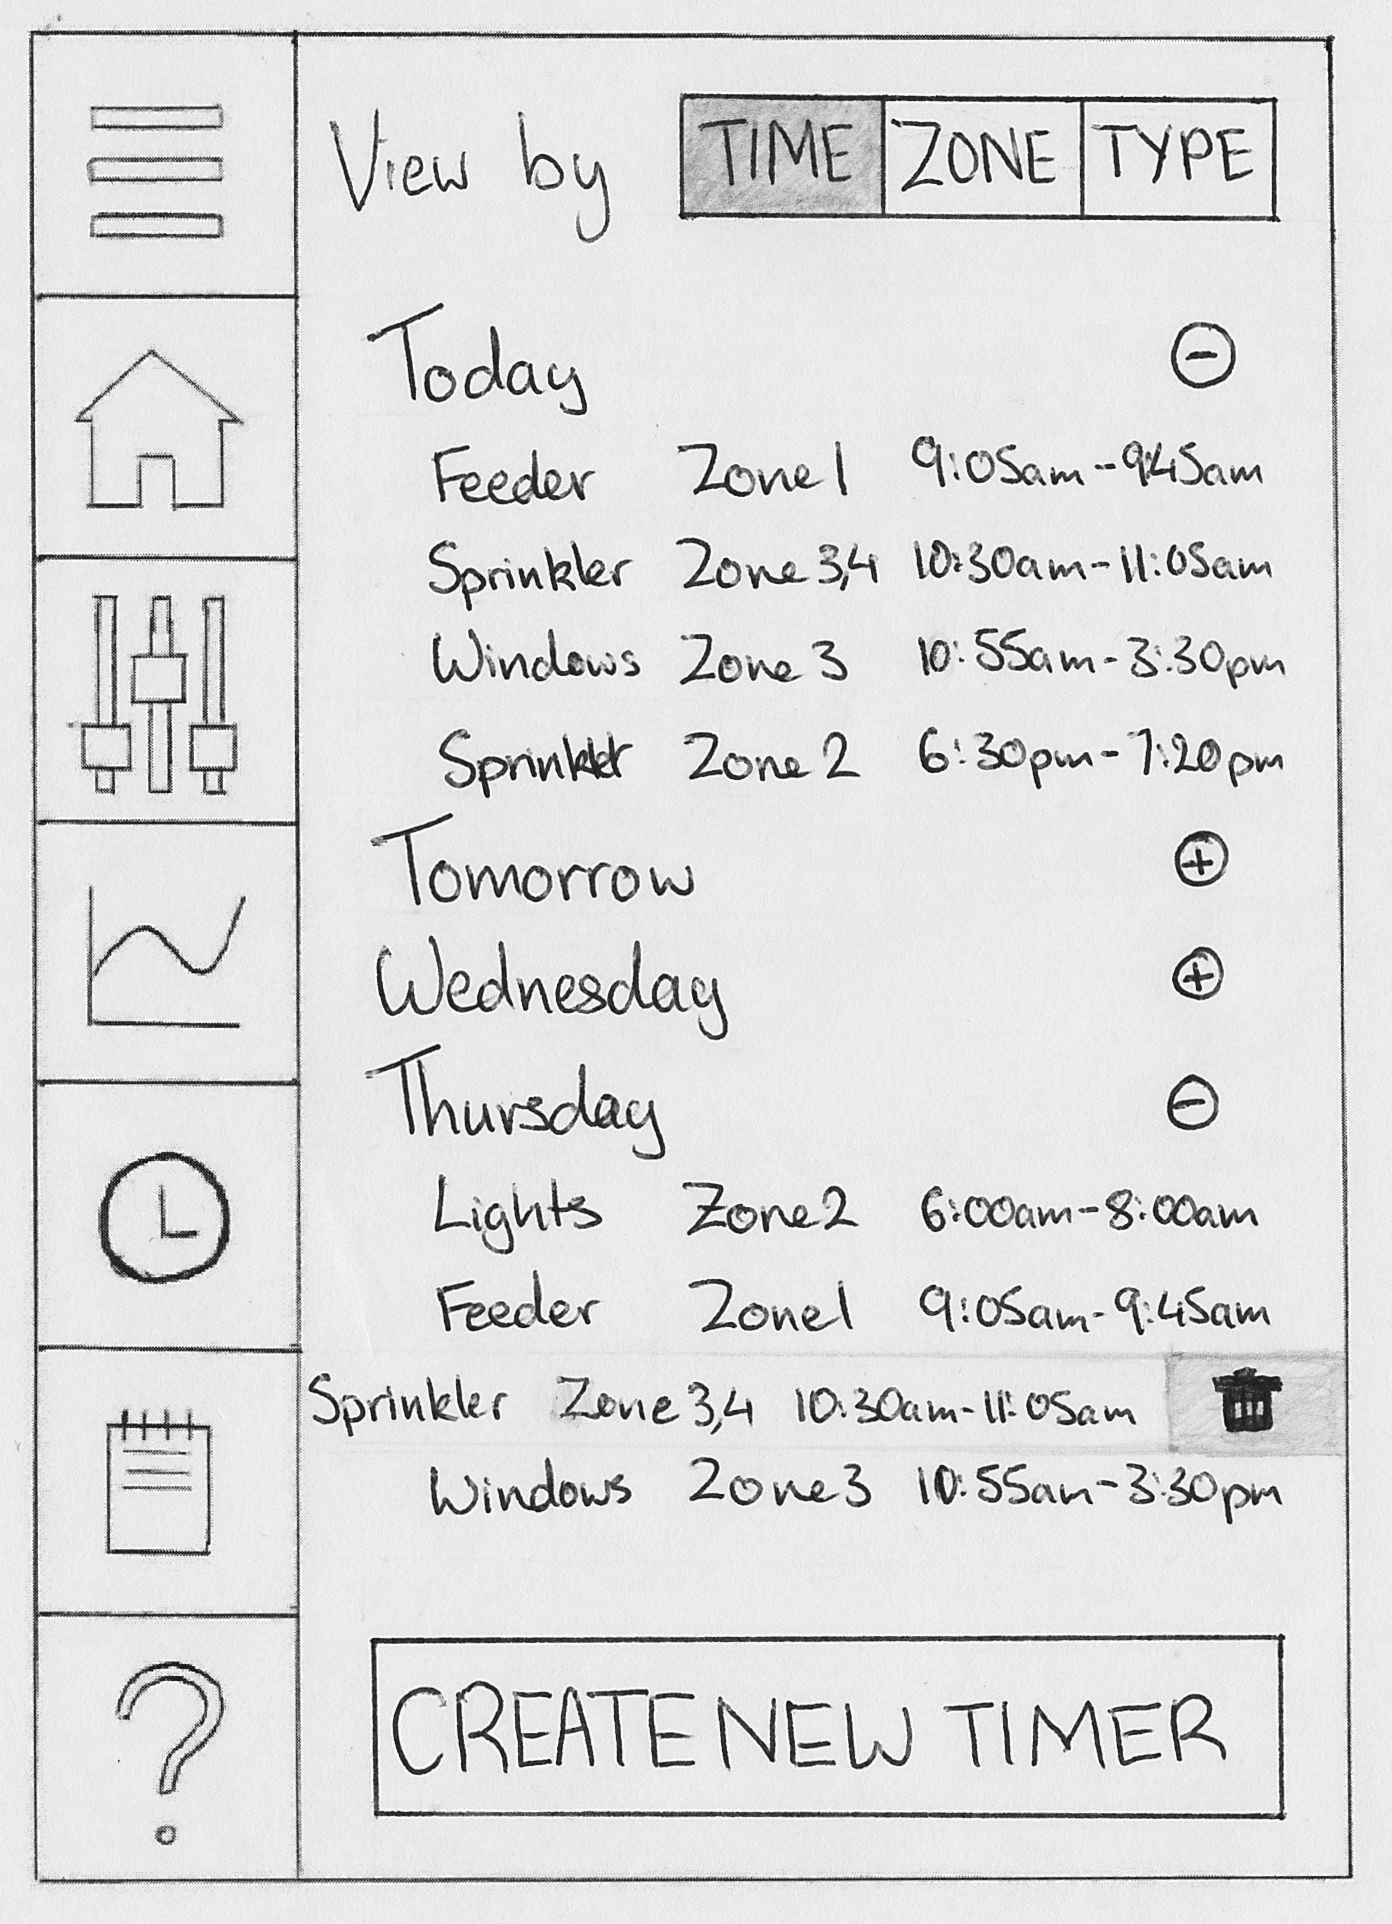 View by TIME ZONE TYPE
Today
Feeder Zone 1 9:05am-9:45am
Sprinkler Zone 3,4 10:30am-11:05am
Windows Zone 3 10:55am-3:30pm
Sprinkler Zone 2 6:30pm-7:20pm
Tomorrow
Wednesday
Thursday
Lights Zone 2 6:00am-8:00am
Feeder Zone 1 9:05am-9:45am
Sprinkler Zone 3,4 10:30am-11:05am
Windows Zone 3 10:55am-3:30pm
CREATE NEW TIMER